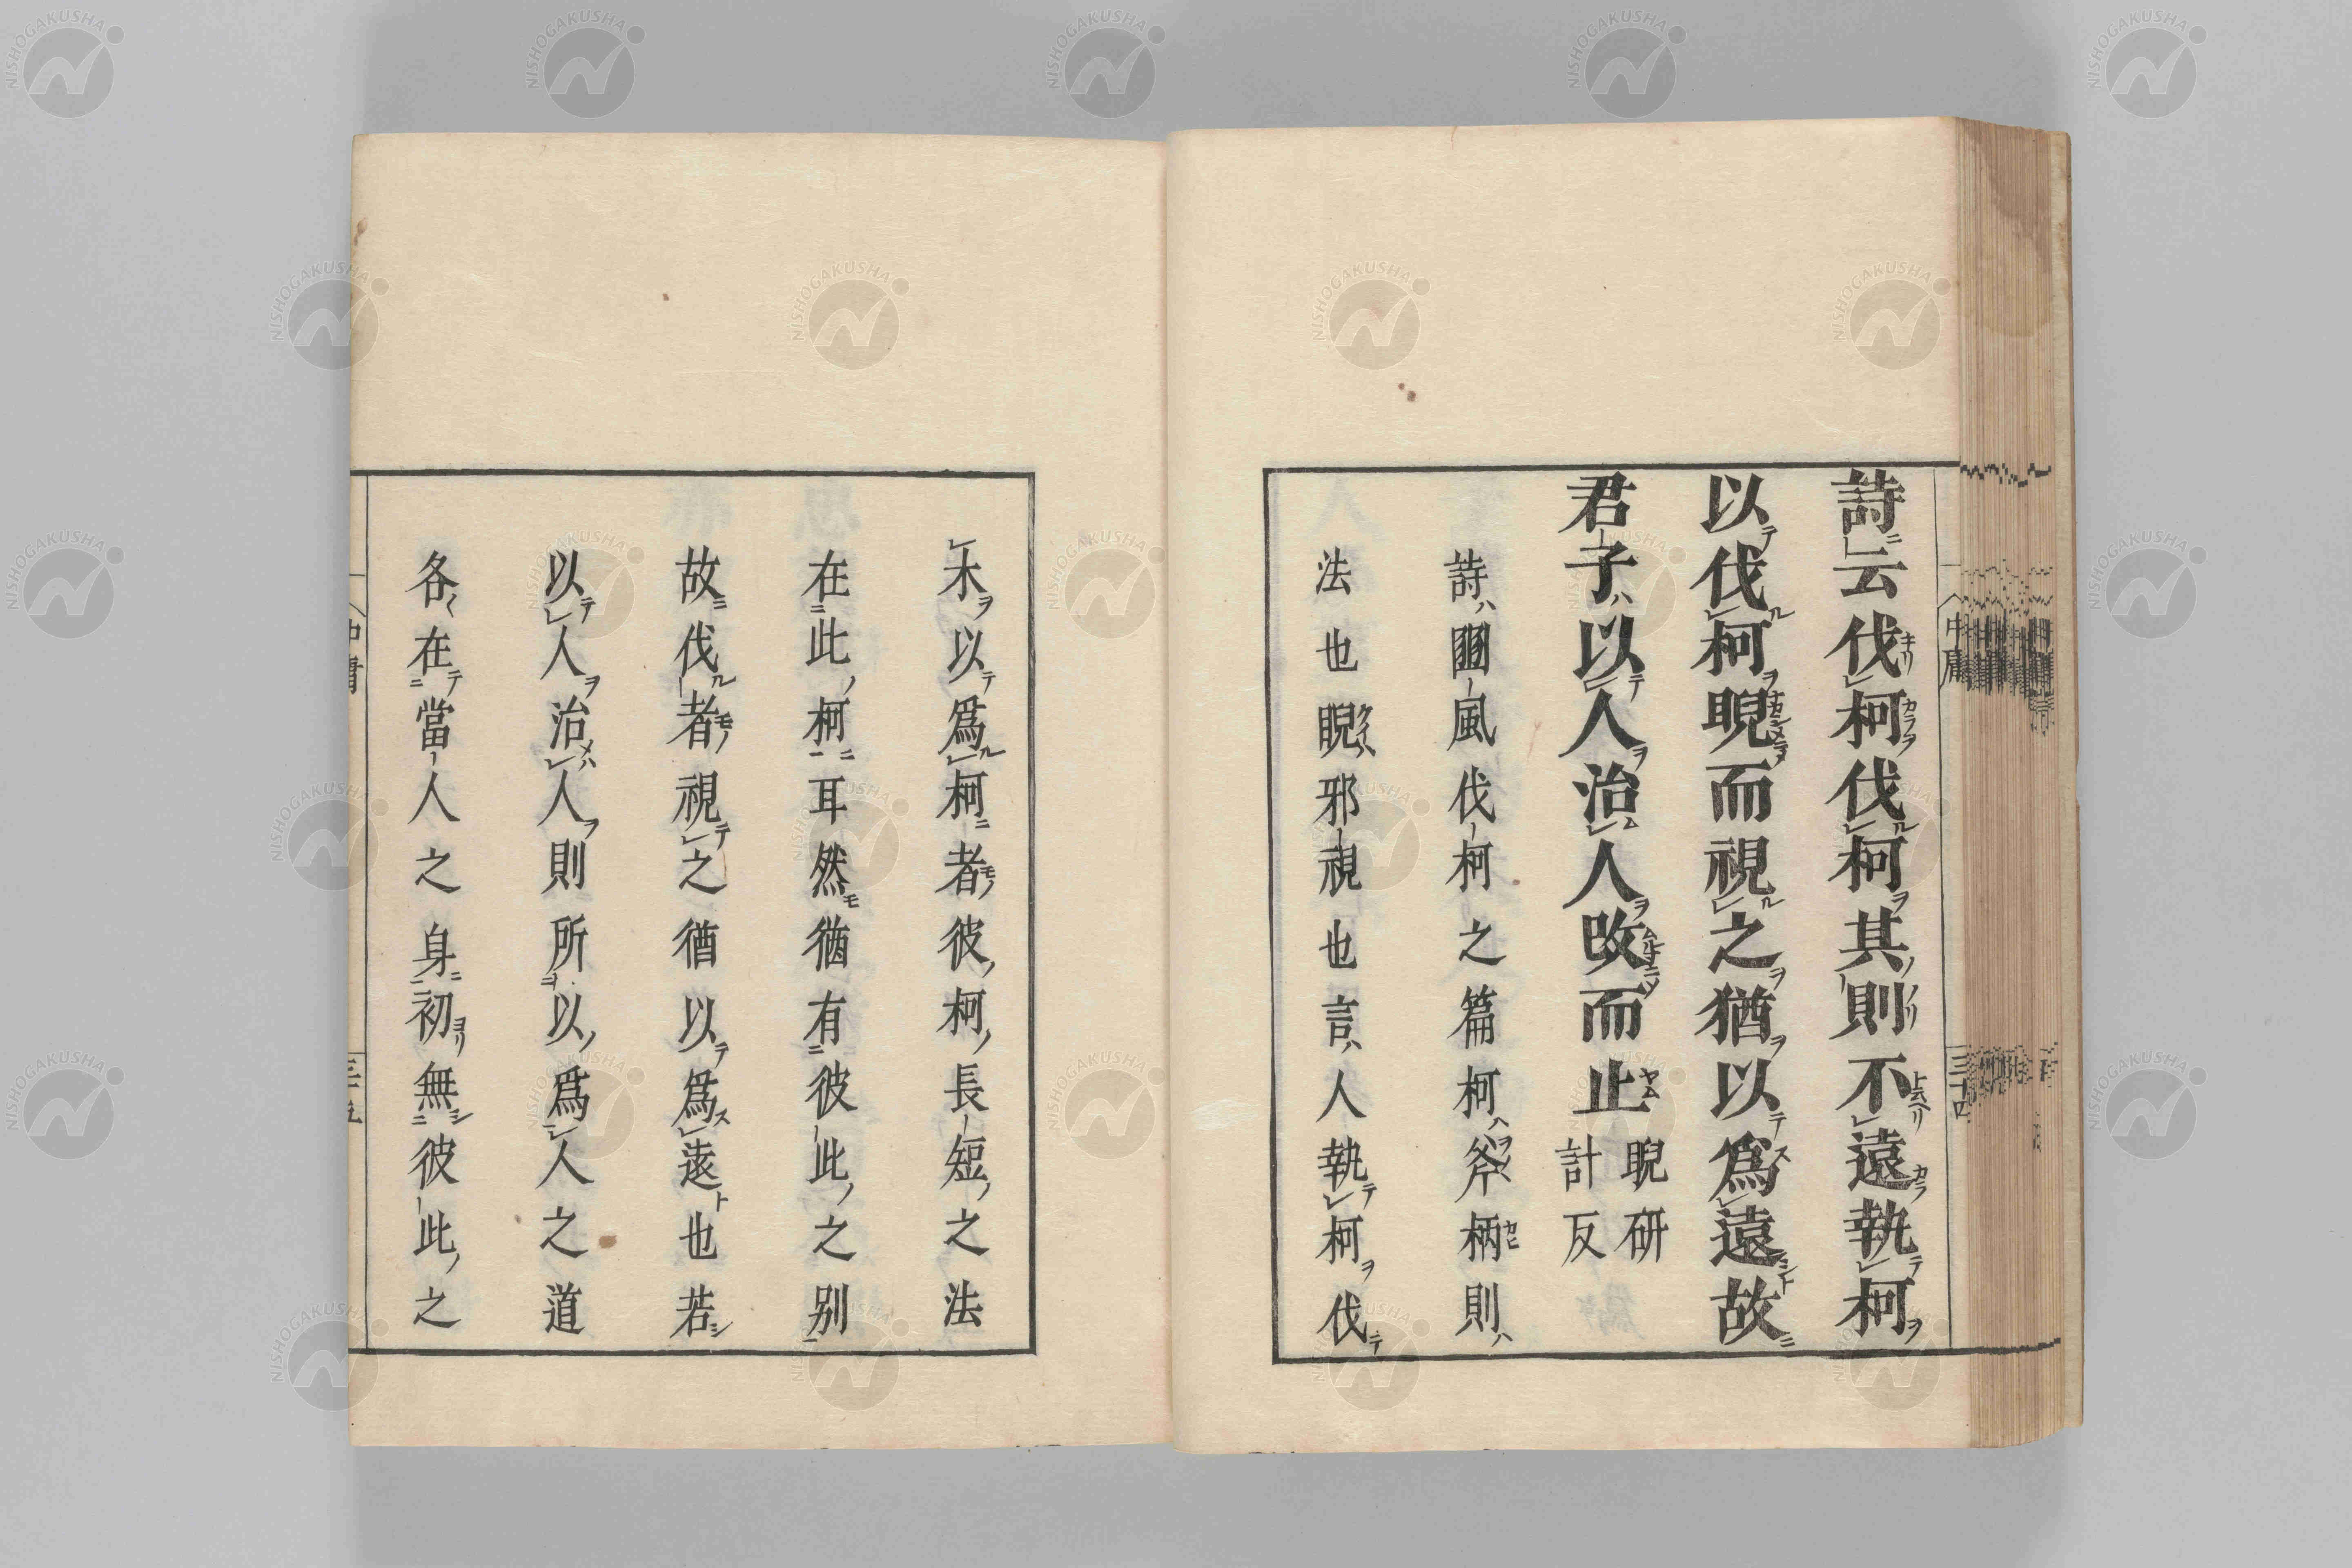 詩云伐柯伐柯其則不遠執柯
以伐柯睨而視之猶以爲遠故
君子以人治人改而止睨研計反
詩豳風伐柯之篇柯斧柄則
法也睨邪視也言人執柯伐
木以爲柯者彼柯長短之法
在此柯耳然猶有彼此之別
故伐者視之猶以爲遠也若
以人治人則所以爲人之道
各在當人之身初無彼此之
中庸
三十四
中庸
三十五
NISHOGAKUSHA